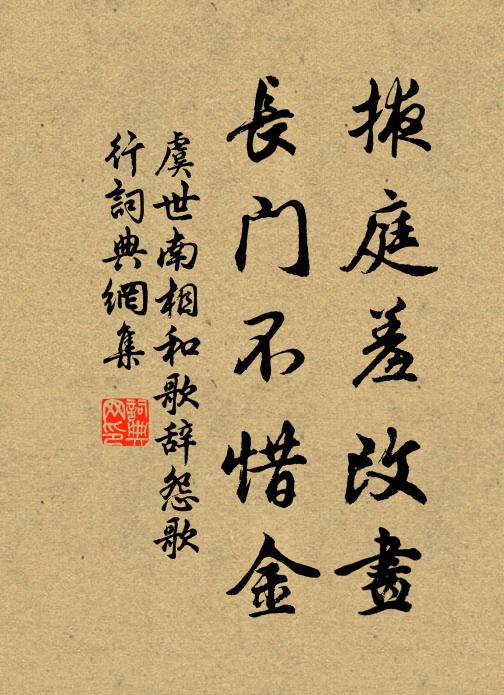 掖庭羞改畫
長门不惜金
虞世南相和歌辞怨歌
行詞典網集
詞典
网印